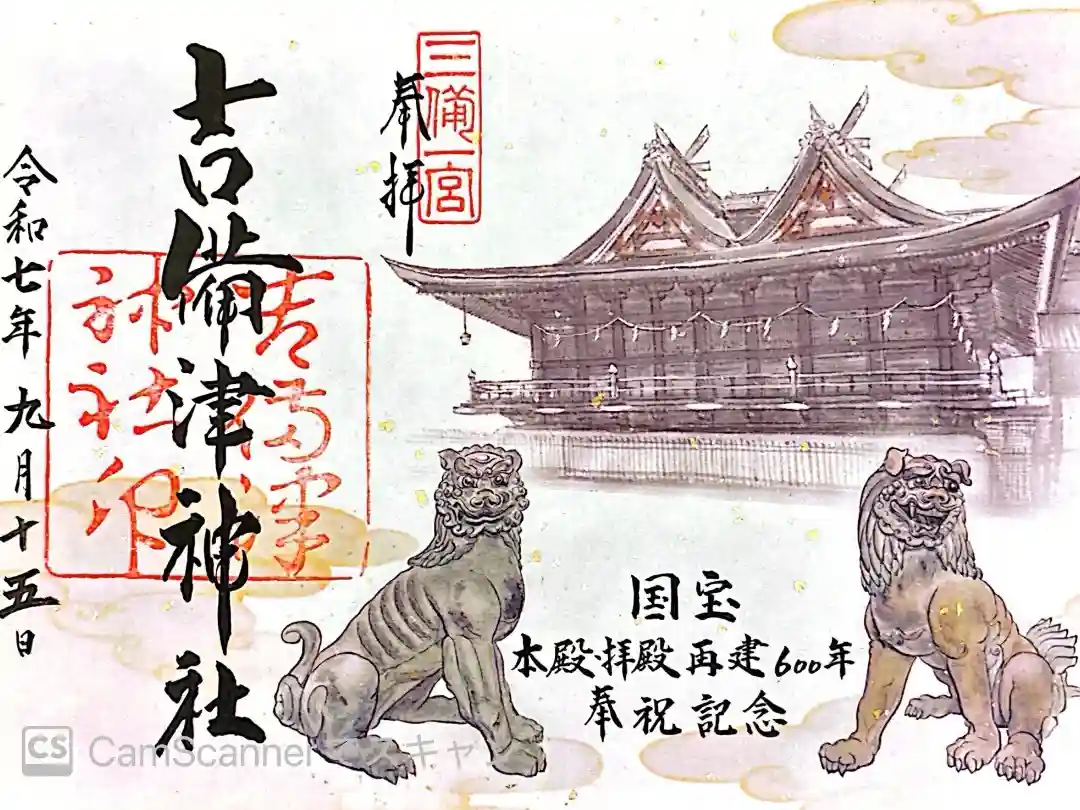 三備一宮
奉拝
吉備津神社
吉備津
神社印
令和七年九月十五日
国宝
本殿·拝殿再建600年
奉祝記念
CS CamScanner